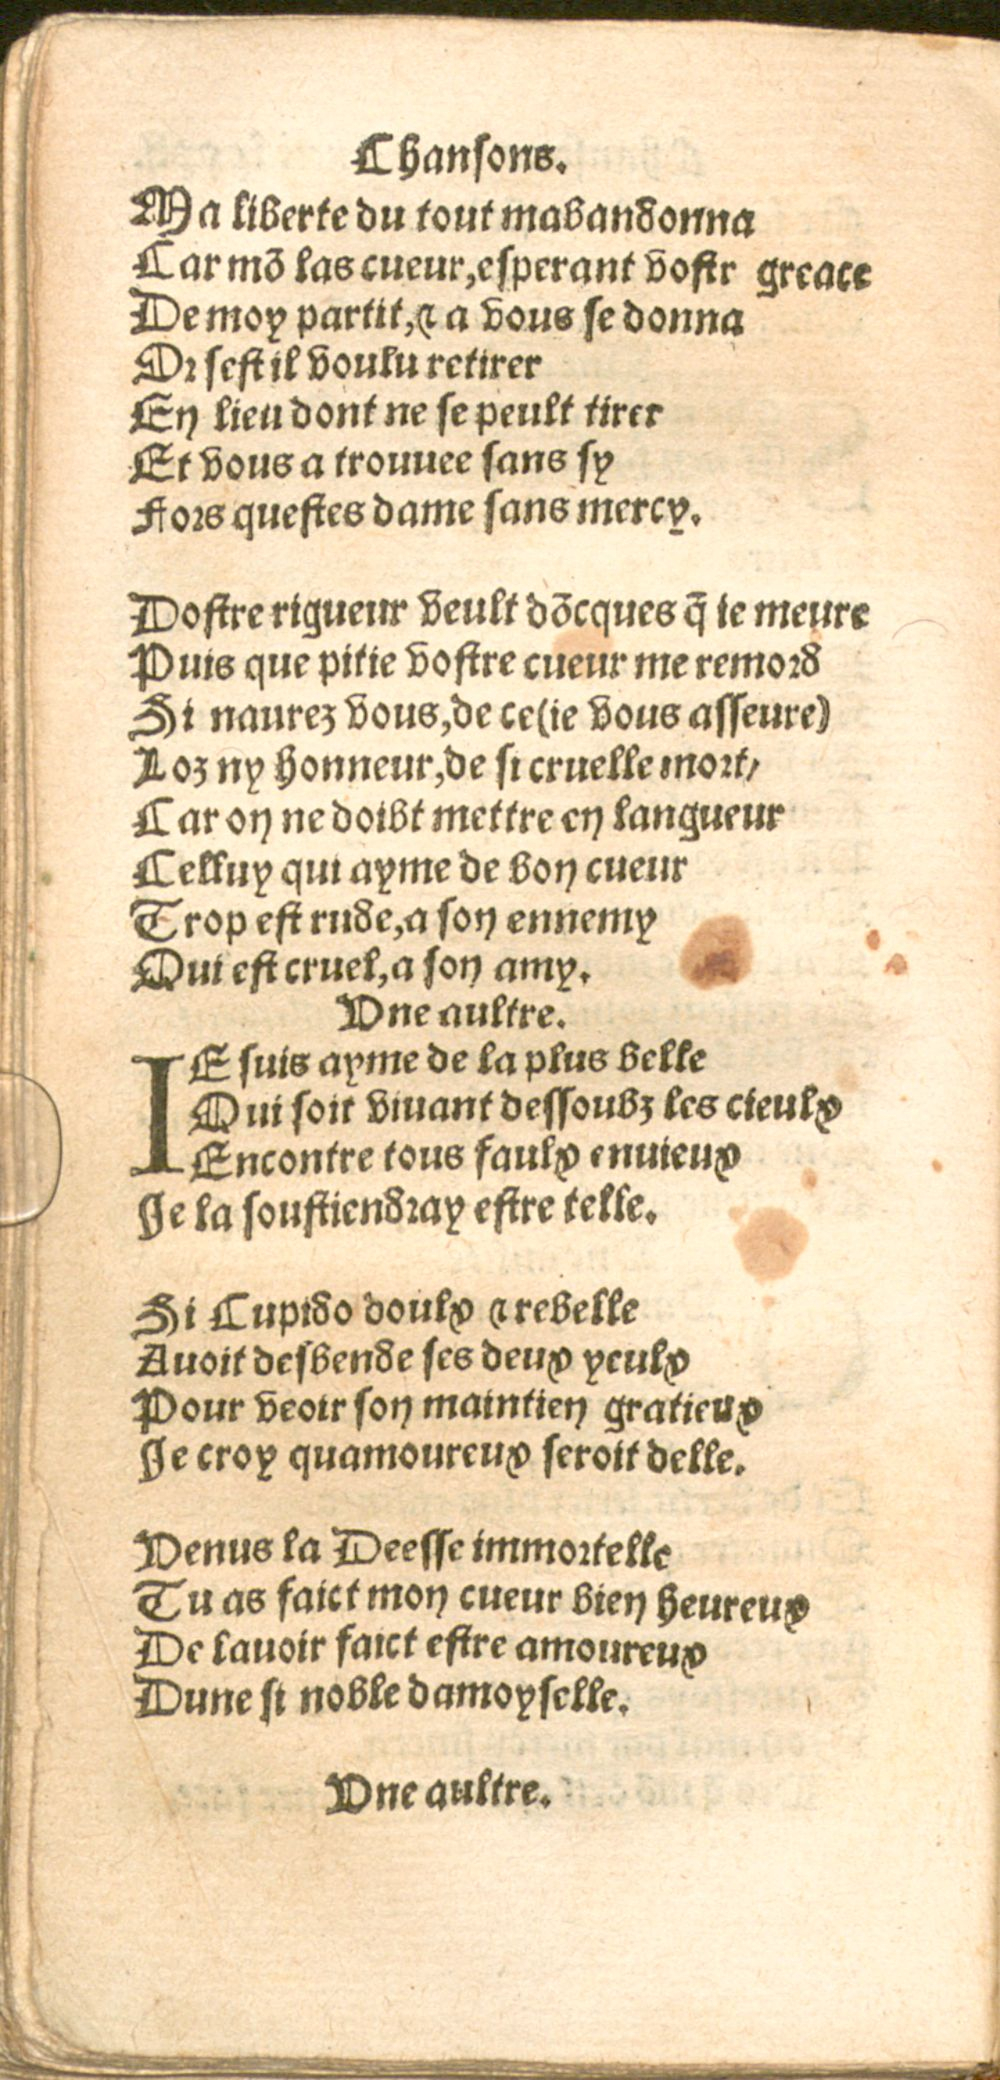 Chansons.
Ma liberte du tout mabandonna
Car mõ las cueur, esperant vostr greace
De moy partit, & a vous se donna
Or sest il voulu retirer
En lieu dont ne se peult tirer
Et vous a trouuee sans sy
Fors questes dame sans mercy.
Vostre rigueur veult dõcques q̃ ie meure
Puis que pitie vostre cueur me remord
Si naurez vous, de ce (ie vous asseure)
Loz ny honneur, de si cruelle mort/
Car on ne doibt mettre en langueur
Celluy qui ayme de bon cueur
Trop est rude, a son ennemy
Qui est cruel, a son amy.
Une aultre.
IE suis ayme de la plus belle
Qui soit viuant dessoubz les cieulx
Encontre tous faulx enuieux
Je la soustiendray estre telle.
Si Cupido doulx & rebelle
Auoit desbende ses deux yeulx
Pour veoir son maintien gratieux
Je croy quamoureux seroit delle.
Venus la Deesse immortelle
Tu as faict mon cueur bien heureux
De lauoir faict estre amoureux
Dune si noble damoyselle.
Une aultre.